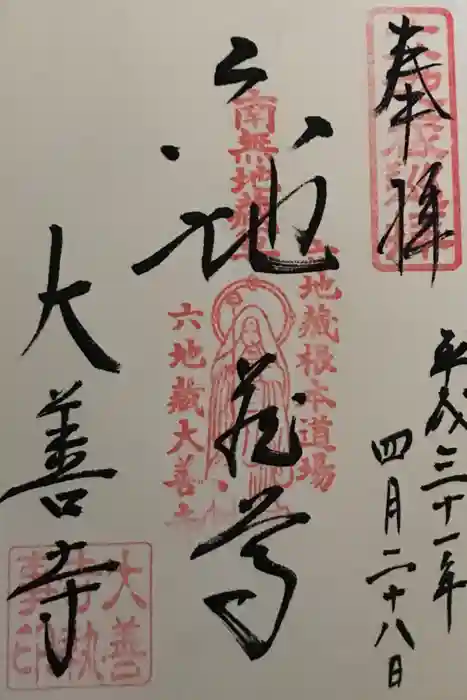 奉拝
平成三十一年
四月二十八日
六地蔵尊
南無地蔵尊
地蔵根本道場
六地蔵大善寺
大善寺
大善寺執事印